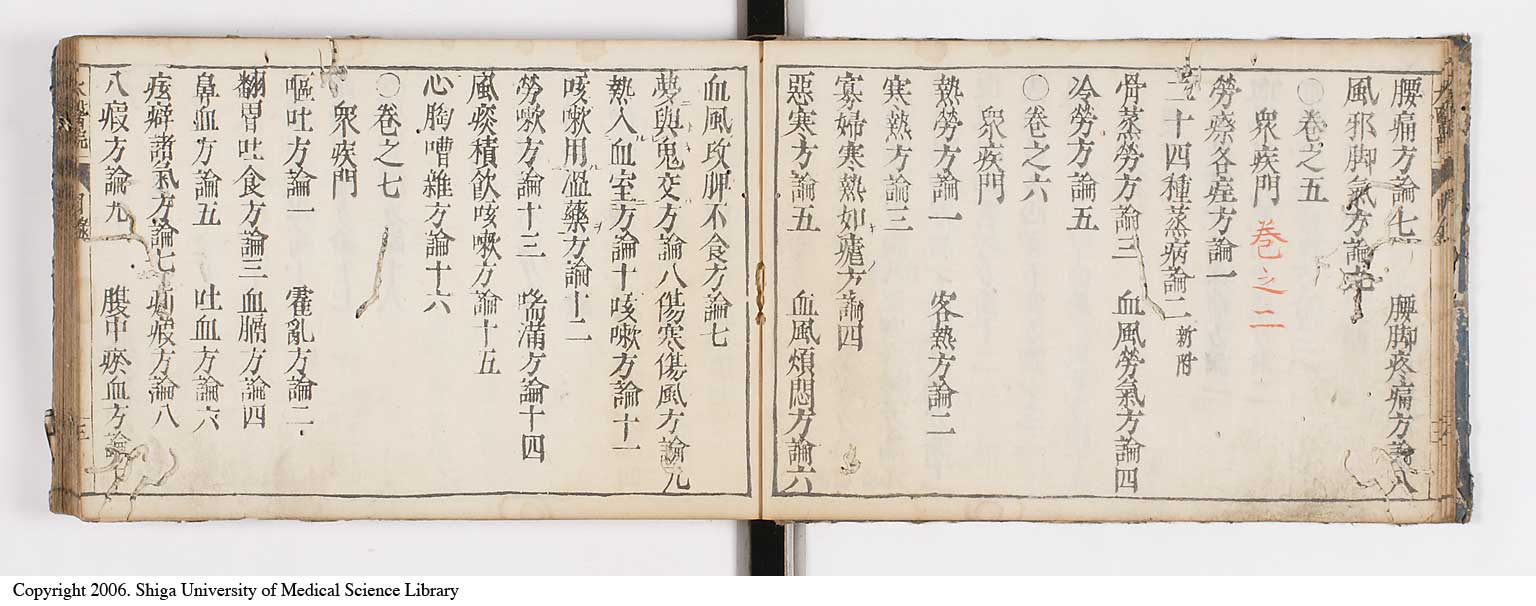 腰痛方論七 腰脚疼痛方論八
風邪脚氣方論
○卷之五
衆疾門 卷之二
勞瘵各症方論一
二十四種蒸病論二 新附
骨蒸勞方論三 血風勞氣方論四
冷勞方論五
○卷之六
衆疾門
熱勞方論一 客熱方論二
寒熱方論三
寡婦寒熱如瘧方論四
惡寒方論五 血風煩悶方論六
血風攻脾不食方論七
夢與鬼交方論八傷寒傷風方論九
熱入血室方論十咳嗽方論十一
咳嗽用溫藥方論十二
勞嗽方論十三 喘滿方論十四
風痰積飲咳嗽方論十五
心胸嘈雜方論十六
○卷之七
衆疾門
嘔吐方論一 霍亂方論二
翻胃吐食方論三血膈方論四
鼻血方論五 吐血方論六
痃癖諸氣方論七疝瘕方論八
八瘕方論九 腹中瘀血方論
Copyright 2006. Shiga University of Medical Science Library